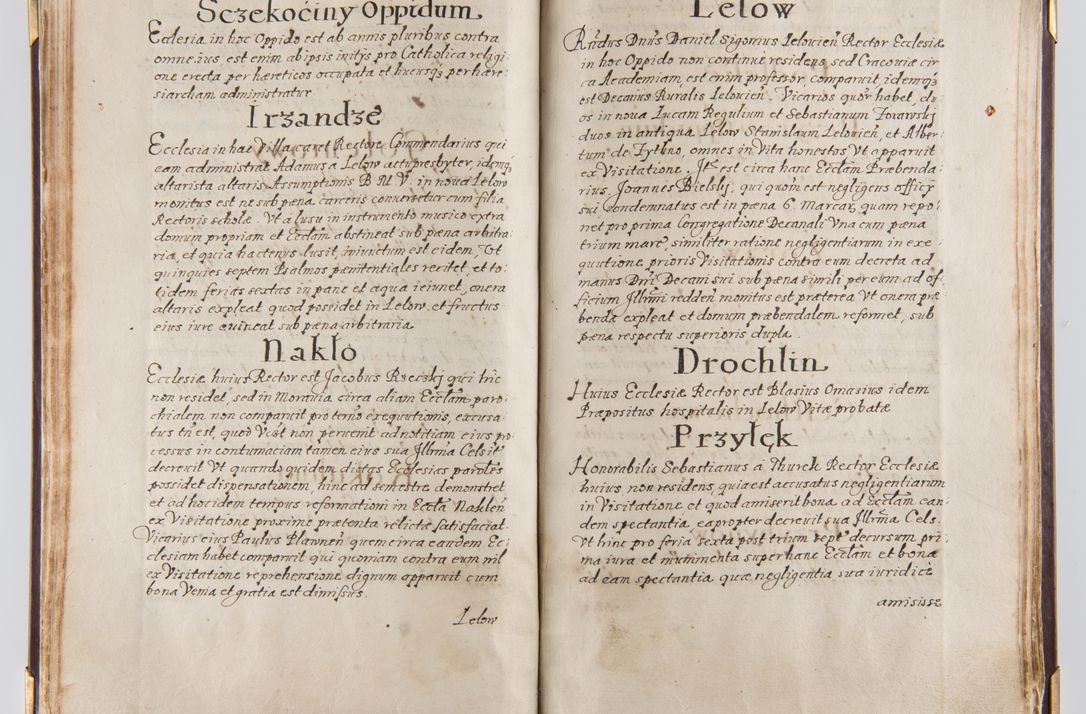 Sczekociny Oppidum
Ecclesia in hoc Oppido est ab annis pluribus contra
omne ius, est enim ab ipsis initijs pro Catholica religi:
one erecta per hæreticos occupata et hucusq; per hære:
siarcham administratur
Irzandze
Ecclesia in hac Villa caret Rectore Commendarius qui
eam administrat Adamus a Lelow actu presbyter, idemq;
altarista altaris Assumptionis B M V. in noua Lelow
monitus est ne sub pæna carceris conuersetur cum filia
Rectoris scholæ. Vt a lusu in instrumento musico extra
domum propriam et Ecclam abstineat sub pæna arbitra:
ria, et quia hactenus lusit, iniunctum est eidem, Vt
quinquies septem Psalmos pænitentiales recitet, et to:
tidem ferias sextas in pane et aqua ieiunet, onera
altaris expleat quod possidet in Lelow et fructus
eius iure euincat sub pæna arbitraria
Nakło
Ecclesiæ huius Rector est Jacobus Rzeczkj qui hic
non residet, sed in Morauia circa aliam Ecclam paro:
chialem non comparuit pro termo exequutionis, excusa:
tus tn est, quod non peruenit ad notitiam eius pro
cessus in contumaciam tamen eius sua Illrma Celsit
decreuit Vt quando quidem dictas Ecclesias paroles
possidet dispensationem, hinc ad semestre demonstret
et ad hoc idem tempus reformationi in Eccla Naklen
ex Visitatione proxime prætenta relictæ satisfaciat.
Vicarius eius Paulus Plawnen quem circa eandem Ec:
clesiam habet comparuit qui quoniam contra eum nil
ex Visitatione reprehensione dignum apparuit cum
bona Venia et gratia est dimissus.
Lelow
Lelow
Rndus Dnus Daniel Sigonius Lelouien Rector Ecclesiæ
in hoc Oppido non continue residens, sed Cracouiæ cir
ca Academiam, est enim professor, comparuit, idemq;
est Decanus Ruralis Lelouien. Vicarios quor habet, du
os in noua Lucam Regulium et Sebastianum Zorawskj
duos in antiqua Lelow Stanislaum Lelouien, et Alber:
tum de Zytno, omnes in Vita honestos Vt apparuit
ex Visitatione. Jt est circa hanc Ecclam Præbenda:
rius, Joannes Bielskj, qui quom est negligens officij
sui condemnatus est in pæna 6. Marcar quam repo:
net pro prima Congregatione Decanali Vna cum pæna
trium marc, similiter ratione negligentiarum in exe
quutione prioris Visitationis contra eum decreta ad
manus Dni Decani sui sub pæna simili per eum ad of:
ficium Illrmi redden monitus est præterea Vt onera præ
bendæ expleat et domum præbendalem reformet, sub
pæna respectu superioris dupla.
Drochlin
Huius Ecclesiæ Rector est Blasius Omazius idem
Præpositus hospitalis in Lelow Vitæ probatæ
Przyłęk
Honorabilis Sebastianus a Thurek Rector Ecclesiæ
huius non residens, quia est accusatus negligentiarum
in Visitatione et quod amiserit bona ad Ecclam ean:
dem spectantia eapropter decreuit sua Illrma Cels.
Vt hinc pro feria sexta post trium sept decursum pri
ma iura et munimenta super hanc Ecclam et bona
ad eam spectantia quæ negligentia sua iuridice
amisisse